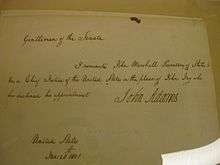 Gentlemen of the Senate
I nominate John Marshall Secretary of State to
be a Chief Justice of the United States in the place of John Jay who
has declined his appointment
John Adams
United States
Jan 20 1801